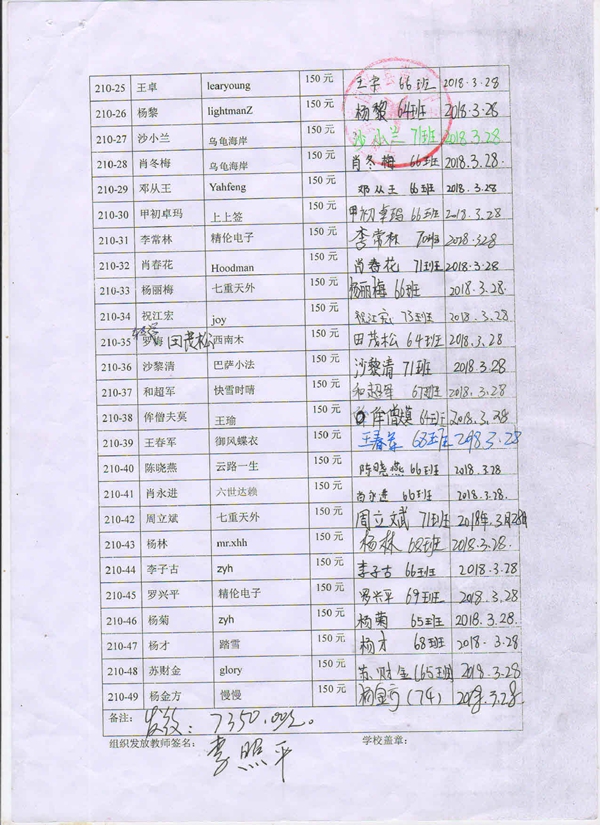 210-25 王卓 learyoung 150 元 王卓 66班 2018.3.28
210-26 杨黎 lightmanZ 150 元 杨黎 64班 2018.3.28
210-27 沙小兰 乌龟海岸 150 元 沙小兰 71班 2018.3.28
210-28 肖冬梅 乌龟海岸 150 元 肖冬梅 66班 2018.3.28.
210-29 邓从王 Yahfeng 150 元 邓从王 66班 2018.3.28
210-30 甲初卓玛 上上签 150 元 甲初卓玛 66班 2018.3.28
210-31 李常林 精伦电子 150 元 李常林 70班 2018.3.28
210-32 肖春花 Hoodman 150 元 肖春花 71班 2018.3.28
210-33 杨丽梅 七重天外 150 元 杨丽梅 66班 2018.3.28.
210-34 祝江宏 joy 150 元 祝江宏 73班 2018.3.28.
210-35 罗海 田茂松 西南木 150 元 田茂松 64班 2018.3.28
210-36 沙黎清 巴萨小法 150 元 沙黎清 71班 2018.3.28
210-37 和超军 快雪时晴 150 元 和超军 67班 2018.3.28
210-38 侔僧夫莫 王瑜 150 元 64班 2018.3.28
210-39 王春军 御风蝶衣 150 元 王春军 68班 2018.3.28
210-40 陈晓燕 云路一生 150 元 陈晓燕 66班 2018.3.28
210-41 肖永进 六世达赖 150 元 肖永进 66班 2018.3.28.
210-42 周立斌 七重天外 150 元 周立斌 71班 2018年3月28日
210-43 杨林 mr.xhh 150 元 杨林 68班 2018.3.28.
210-44 李子古 zyh 150 元 李子古 66班 2018.3.28
210-45 罗兴平 精伦电子 150 元 罗兴平 69班 2018.3.28
210-46 杨菊 zyh 150 元 杨菊 65班 2018.3.28
210-47 杨才 踏雪 150 元 杨才 68班 2018.3.28
210-48 苏财金 glory 150 元 苏财金(65班) 2018.3.28
210-49 杨金方 慢慢 150 元 杨金方(74) 2018.3.28.
备注: 发放: 7350.00元。
组织发放教师签名: 李照平 学校盖章: